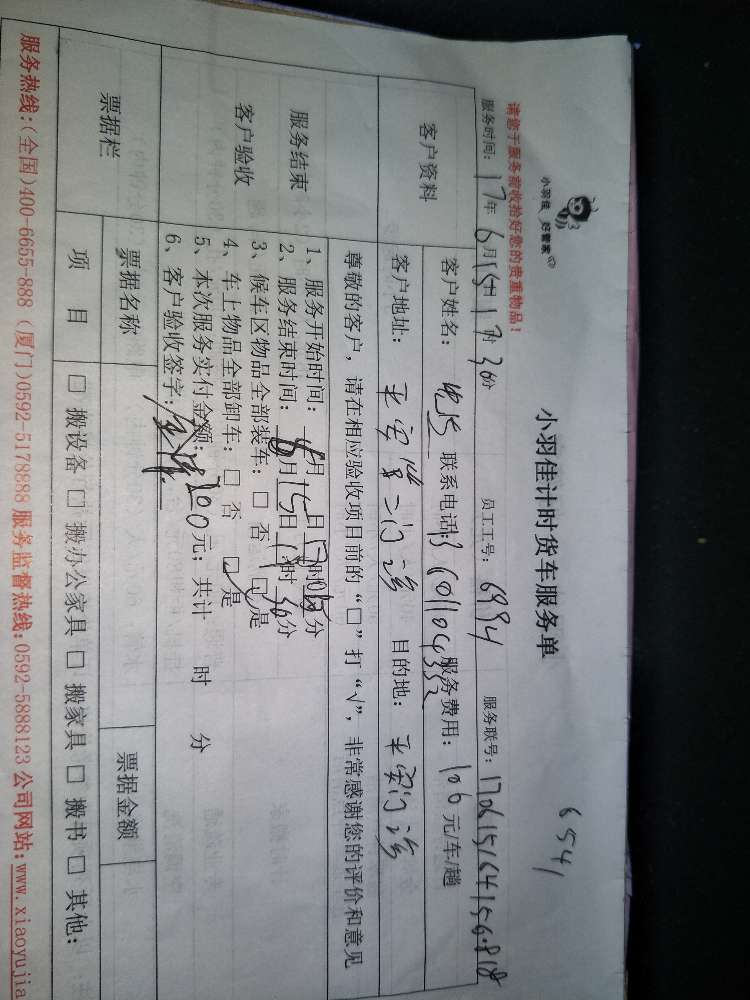 小羽佳 好管家
小羽佳计时货车服务单
6541
请您于服务前收拾好您的贵重物品！
服务时间：17年 6月15日 17时 30分 员工工号：6994 服务联号：
客户资料
客户姓名： 联系电话： 服务费用：100 元/车/趟
客户地址： 目的地：
尊敬的客户，请在相应验收项目前的“□”打“√”，非常感谢您的评价和意见
服务结束
客户验收
1、服务开始时间： 月15日 时 分
2、服务结束时间：6月15日 时30分
3、候车区物品全部装车：□ 否 □ 是
4、车上物品全部卸车：□ 否 □ 是
5、本次服务实付金额：200元；共计 时 分
6、客户验收签字：
票据栏
票据名称 票据金额
项 目 □ 搬设备 □ 搬办公家具 □ 搬家具 □ 搬书 □ 其他：
服务热线：(全国)400-6655-888 (厦门)0592-5178888 服务监督热线：0592-5888123 公司网站：www.xiaoyujia